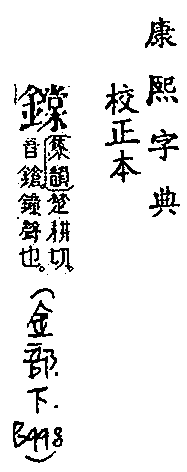 康熙字典
校正本
鐣
集韻楚耕切。
音鎗鐘聲也。
(金部.下.B448)